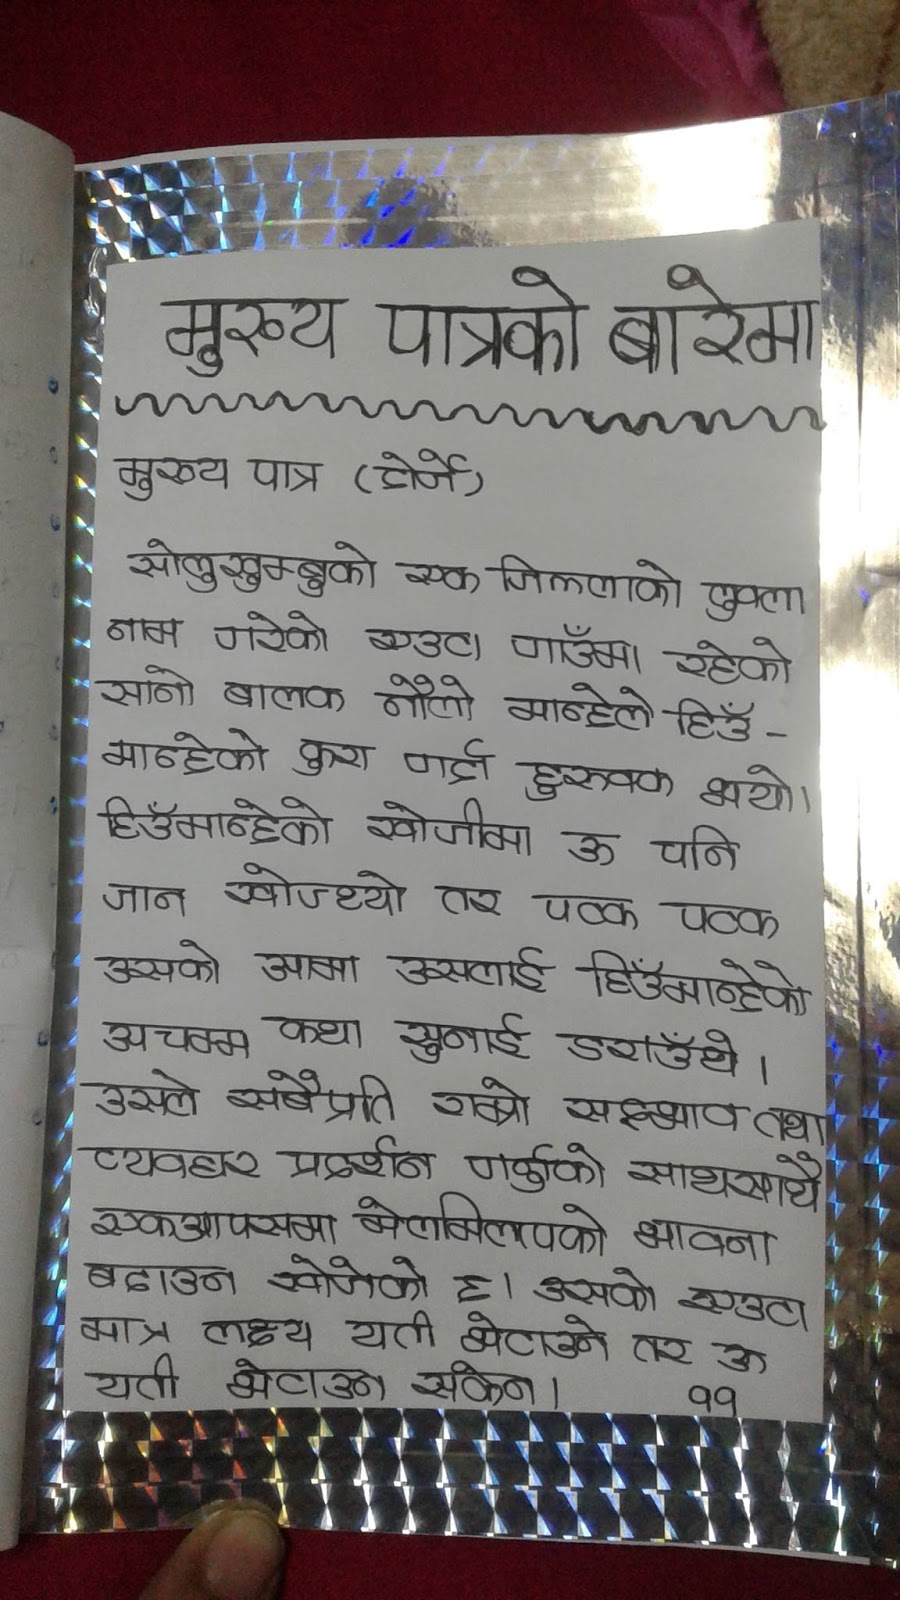 मुख्य पात्रको बारेमा
मुख्य पात्र (दोर्जे)
सोलुखुम्बुको एक जिल्लाको लुक्ला
नाम गरेको एउटा गाउँमा रहेको
सानो बालक नौलो मान्छेले हिउँ -
मान्छेको कुरा गर्दा हुरुक्क भयो।
हिउँमान्छेको खोजीमा ऊ पनि
जान खोज्थ्यो तर पटक पटक
उसको आमा उसलाई हिउँमान्छेको
अचम्म कथा सुनाई डराउँथे।
उसले सबैप्रति राम्रो सद्भाव तथा
व्यवहार प्रदर्शन गर्नुको साथसाथै
एकआपसमा मेलमिलापको भावना
बढाउन खोजेको छ। उसको एउटा
मात्र लक्ष्य यती भेटाउने तर ऊ
यती भेटाउन सकेन।
११